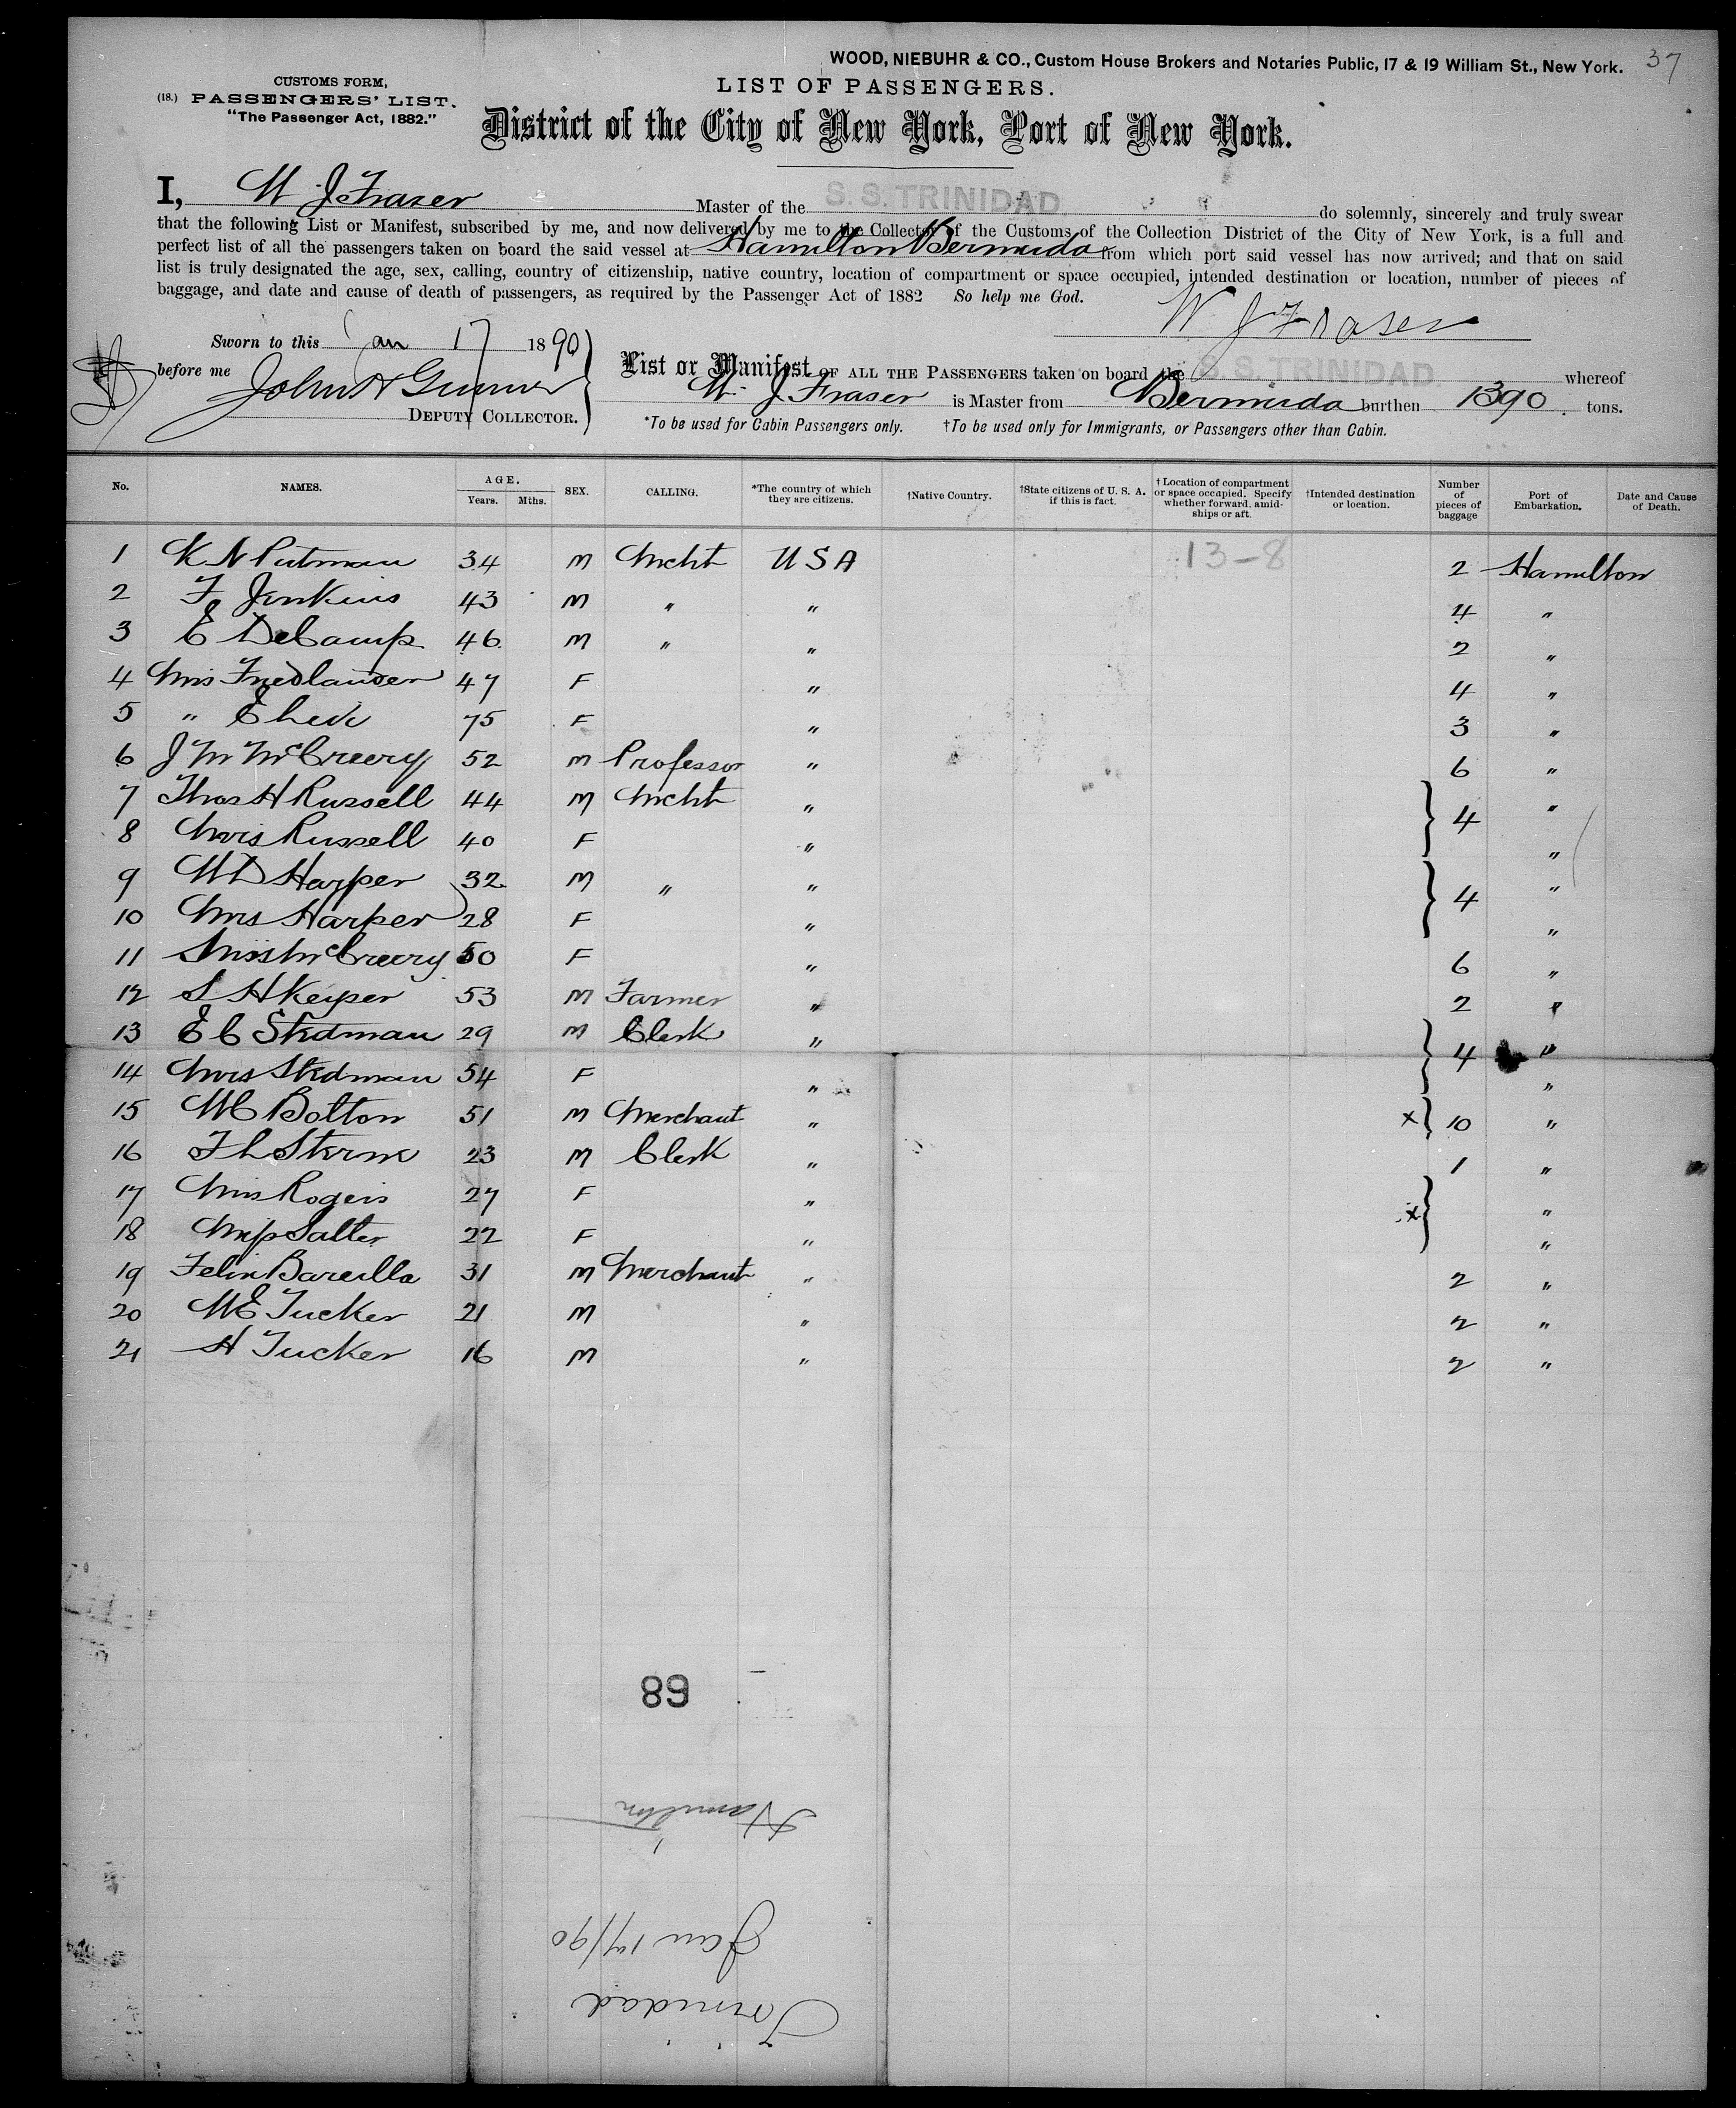 WOOD, NIEBUHR & CO., Custom House Brokers and Notaries Public, 17 & 19 William St., New York. 37
CUSTOMS FORM,
(18.) PASSENGERS' LIST.
"The Passenger Act, 1882."
LIST OF PASSENGERS.
District of the City of New York, Port of New York.
I, W J Fraser Master of the S. S. TRINIDAD do solemnly, sincerely and truly swear
that the following List or Manifest, subscribed by me, and now delivered by me to the Collector of the Customs of the Collection District of the City of New York, is a full and
perfect list of all the passengers taken on board the said vessel at Hamilton Bermuda from which port said vessel has now arrived; and that on said
list is truly designated the age, sex, calling, country of citizenship, native country, location of compartment or space occupied, intended destination or location, number of pieces of
baggage, and date and cause of death of passengers, as required by the Passenger Act of 1882 So help me God.
W J Fraser
Sworn to this Jan 17 1890
before me John A
DEPUTY COLLECTOR.
List or Manifest OF ALL THE PASSENGERS taken on board the S. S. TRINIDAD whereof
W. J Fraser is Master from Bermuda burthen 1390 tons.
*To be used for Cabin Passengers only. †To be used only for Immigrants, or Passengers other than Cabin.
No. NAMES. AGE. Years. Mths. SEX. CALLING. *The country of which they are citizens. †Native Country. †State citizens of U. S. A. if this is fact. †Location of compartment or space occupied. Specify whether forward, amidships or aft. †Intended destination or location. Number of pieces of baggage Port of Embarkation. Date and Cause of Death.
1 K N Putman 34 M Mcht U S A 13-8 2 Hamilton
2 F Jenkins 43 M " " 4 "
3 E DeCamp 46 M " " 2 "
4 Mrs Friedlander 47 F " 4 "
5 " E 75 F " 3 "
6 J M McCreery 52 M Professor " 6 "
7 Thos H Russell 44 M Mcht " 4 "
8 Mrs Russell 40 F " "
9 W D Harper 32 M " " 4 "
10 Mrs Harper 28 F " "
11 Miss McCreery 50 F " 6 "
12 S H Keyser 53 M Farmer " 2 "
13 E C Stedman 29 M Clerk " 4 "
14 Mrs Stedman 54 F " "
15 W C Bolton 51 M Merchant " x 10 "
16 F L Sterne 23 M Clerk " 1 "
17 Mrs Rogers 27 F " x "
18 Miss Salter 22 F " "
19 Felix 31 M Merchant " 2 "
20 W E Tucker 21 M " 2 "
21 H Tucker 16 M " 2 "
89
Hamilton
Jan 17/90
Trinidad